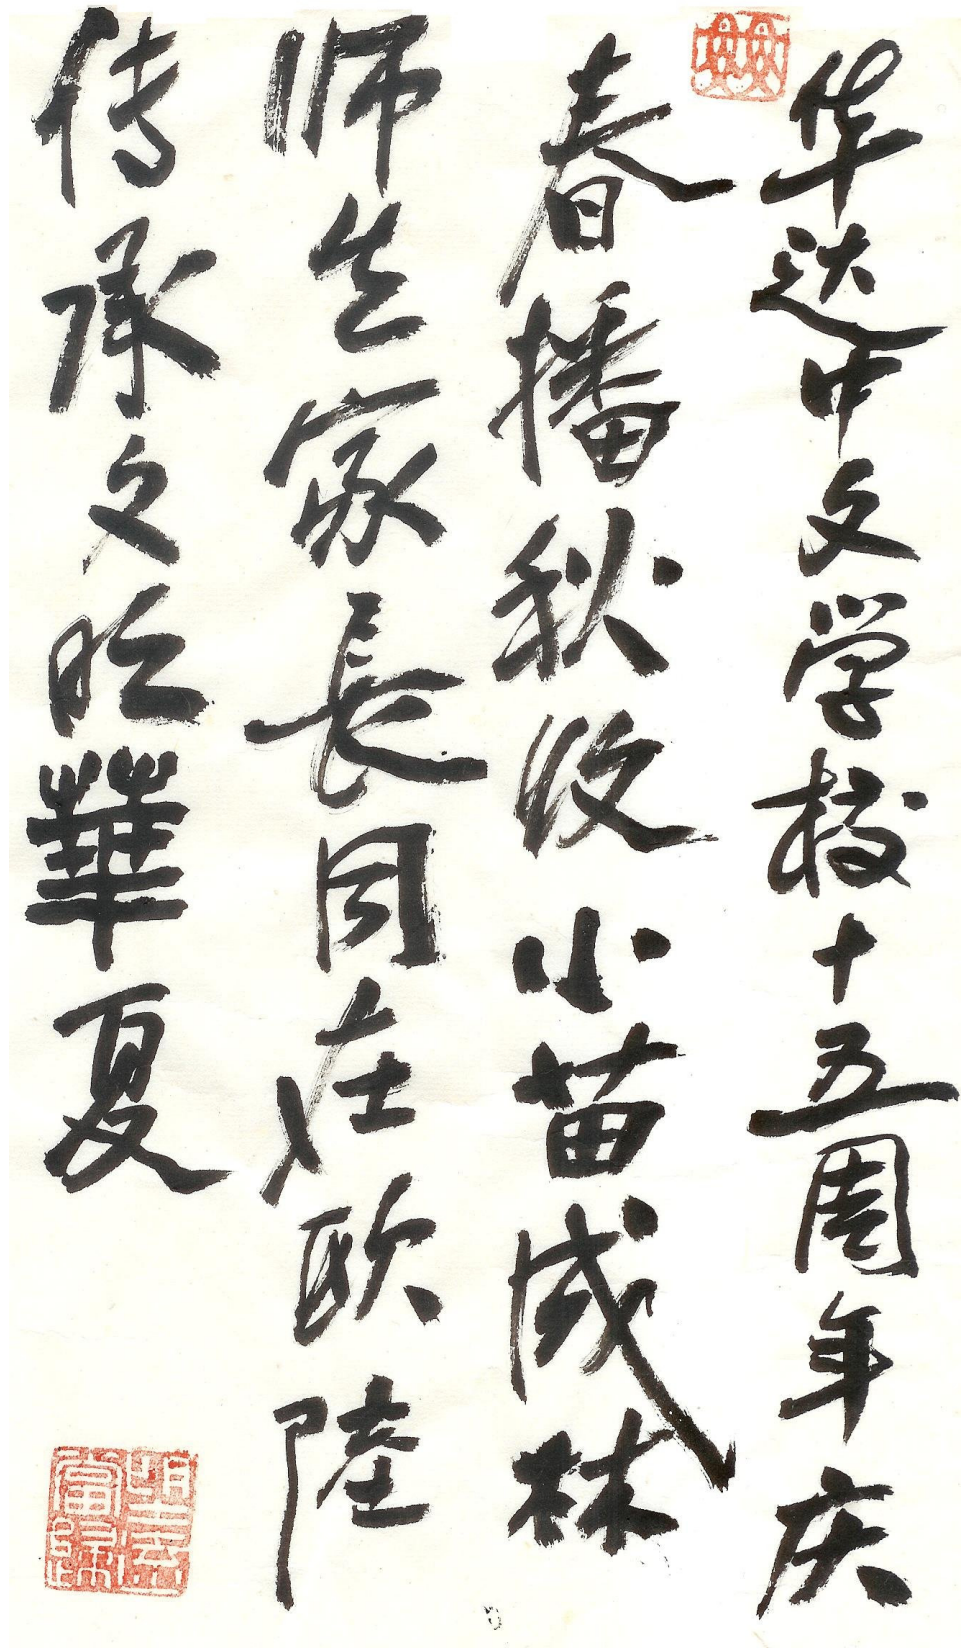 华达中文学校十五周年庆
春播秋收小苗成林
师生家長同在欧陸
传承文明華夏